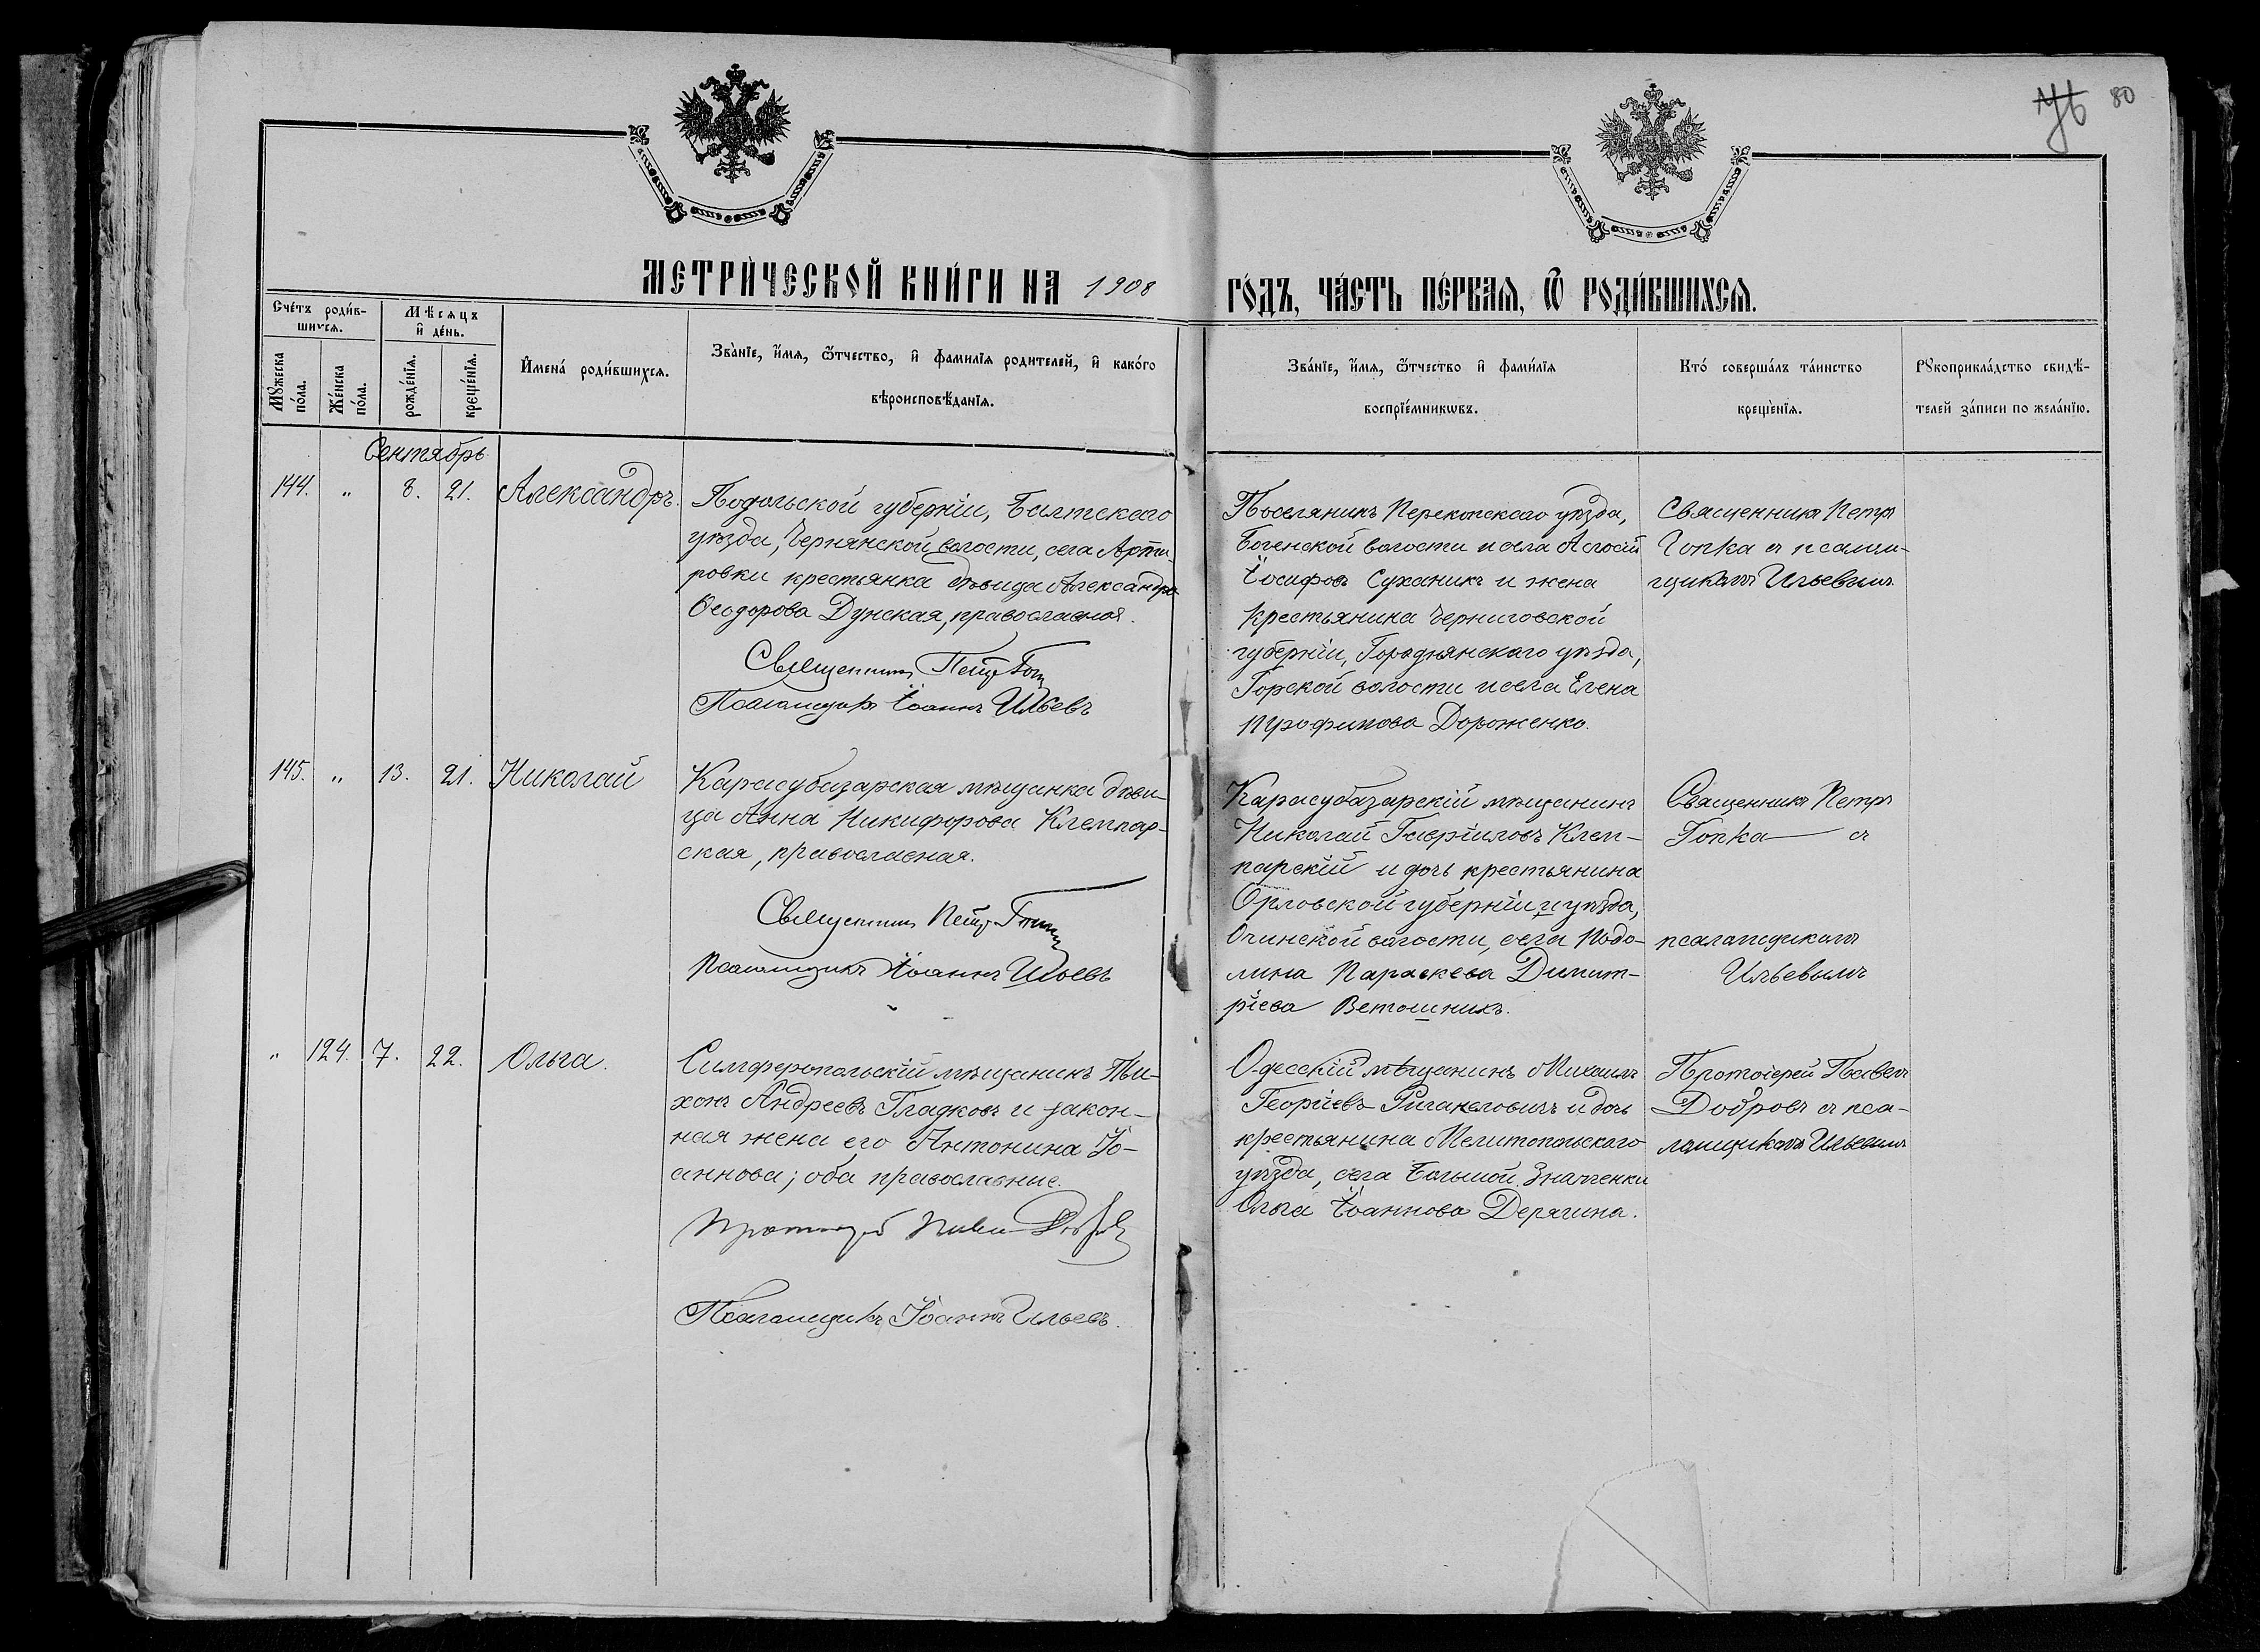 76 80
МЕТРИ́ЧЕСКОЙ КНИ́ГИ НА 1908 ГО́ДЪ, ЧА́СТЬ ПЕ́РВАѦ, Ѿ РОДИ́ВШИХСѦ.
Сче́тъ роди́в-
шихсѧ.
Мѣ́сѧцъ
и҆ де́нь.
Мꙋ́жеска
по́ла.
Же́нска
по́ла.
рожде́нїѧ.
креще́нїѧ.
И҆мена́ роди́вшихсѧ.
Зва́нїе, и҆́мѧ, ѻ҆́тчество, и҆ фамилїѧ родителей, и҆ како́го
вѣроисповѣ́данїѧ.
Зва́нїе, и҆́мѧ, ѻ҆́тчество и҆ фами́лїѧ
воспрїе́мникωвъ.
Кто́ соверша́лъ та́инство
креще́нїѧ.
Рꙋкоприкла́дство свидѣ́-
телей за́писи по жела́нїю.
Сентябрь
144. " 8. 21. Александръ.
Подольской губерніи, Балтскаго
уѣзда, Чернянской волости, села Арти-
ровки крестьянка дѣвица Александра
Ѳеодорова Дунская, православная.
Священникъ Петръ Гопка
Псаломщикъ Іоаннъ Ильевъ
Поселянинъ Перекопскаго уѣзда,
Богенской волости и села
Іосифовъ Суханикъ и жена
крестьянина Черниговской
губерніи, Городнянскаго уѣзда,
Горской волости и села Елена
Трофимова Дороженко.
Священникъ Петръ
Гопка съ псалом-
щикомъ Ильевымъ
145. " 13. 21. Николай
Карасубазарская мѣщанка дѣви-
ца Анна Никифорова Клемпар-
ская, православная.
Священникъ Петръ Гопка
Псаломщикъ Іоаннъ Ильевъ
Карасубазарскій мѣщанинъ
Николай Гавріиловъ Клем-
парскій и дочь крестьянина
Орловской губерніи и уѣзда,
волости, села Подо-
лина Параскева Димит-
ріева Ветошникъ.
Священникъ Петръ
Гопка съ
псаломщикомъ
Ильевымъ
" 124. 7. 22. Ольга.
Симферопольскій мѣщанинъ Ти-
хонъ Андреевъ Гладковъ и закон-
ная жена его Антонина Іо-
аннова; оба православные.
Протоіерей Павелъ Добровъ
Псаломщикъ Іоаннъ Ильевъ.
Одесскій мѣщанинъ Михаилъ
Георгіевъ и дочь
крестьянина Мелитопольскаго
уѣзда, села Большой Знаменки
Ольга Іоаннова Дерягина.
Протоіерей Павелъ
Добровъ съ пса-
ломщикомъ Ильевымъ